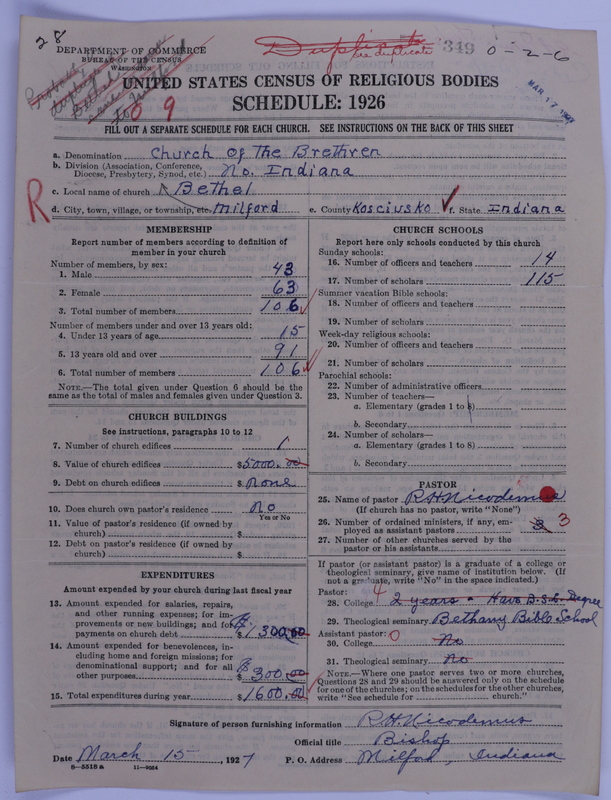 28
Duplicate
see duplicate
349
0-2-6
DEPARTMENT OF COMMERCE
BUREAU OF THE CENSUS
WASHINGTON
MAR 17 1927
UNITED STATES CENSUS OF RELIGIOUS BODIES
0 9
SCHEDULE: 1926
FILL OUT A SEPARATE SCHEDULE FOR EACH CHURCH. SEE INSTRUCTIONS ON THE BACK OF THIS SHEET
a. Denomination Church of the Brethren
b. Division (Association, Conference, Diocese, Presbytery, Synod, etc.) No. Indiana
c. Local name of church Bethel
R
d. City, town, village, or township, etc. Milford e. County Kosciusko f. State Indiana
MEMBERSHIP
Report number of members according to definition of
member in your church
Number of members, by sex:
1. Male 43
2. Female 63
3. Total number of members 106
Number of members under and over 13 years old:
4. Under 13 years of age 15
5. 13 years old and over 91
6. Total number of members 106
NOTE.—The total given under Question 6 should be the
same as the total of males and females given under Question 3.
CHURCH BUILDINGS
See instructions, paragraphs 10 to 12
7. Number of church edifices 1
8. Value of church edifices $5000.00
9. Debt on church edifices $ None
10. Does church own pastor's residence No
Yes or No
11. Value of pastor's residence (if owned by
church) $
12. Debt on pastor's residence (if owned by
church) $
EXPENDITURES
Amount expended by your church during last fiscal year
13. Amount expended for salaries, repairs,
and other running expenses; for im-
provements or new buildings; and for
payments on church debt $1300.00
14. Amount expended for benevolences, in-
cluding home and foreign missions; for
denominational support; and for all
other purposes $300.00
15. Total expenditures during year $1600.00
CHURCH SCHOOLS
Report here only schools conducted by this church
Sunday schools:
16. Number of officers and teachers 14
17. Number of scholars 115
Summer vacation Bible schools:
18. Number of officers and teachers
19. Number of scholars
Week-day religious schools:
20. Number of officers and teachers
21. Number of scholars
Parochial schools:
22. Number of administrative officers
23. Number of teachers—
a. Elementary (grades 1 to 8)
b. Secondary
24. Number of scholars—
a. Elementary (grades 1 to 8)
b. Secondary
PASTOR
25. Name of pastor R.H. Nicodemus
(If church has no pastor, write "None")
26. Number of ordained ministers, if any, em-
ployed as assistant pastors 3 3
27. Number of other churches served by the
pastor or his assistants
If pastor (or assistant pastor) is a graduate of a college or
theological seminary, give name of institution below. (If
not a graduate, write "No" in the space indicated.)
Pastor: 4
28. College 2 years - Have B.S.L. Degree
29. Theological seminary Bethany Bible School
Assistant pastor: 0
30. College No
31. Theological seminary No
NOTE.—Where one pastor serves two or more churches,
Questions 28 and 29 should be answered only on the schedule
for one of the churches; on the schedules for the other churches,
write "See schedule for church."
Signature of person furnishing information R.H. Nicodemus
Official title Bishop
Date March 15, 1927 P. O. Address Milford, Indiana
8-5518 a 11-9034